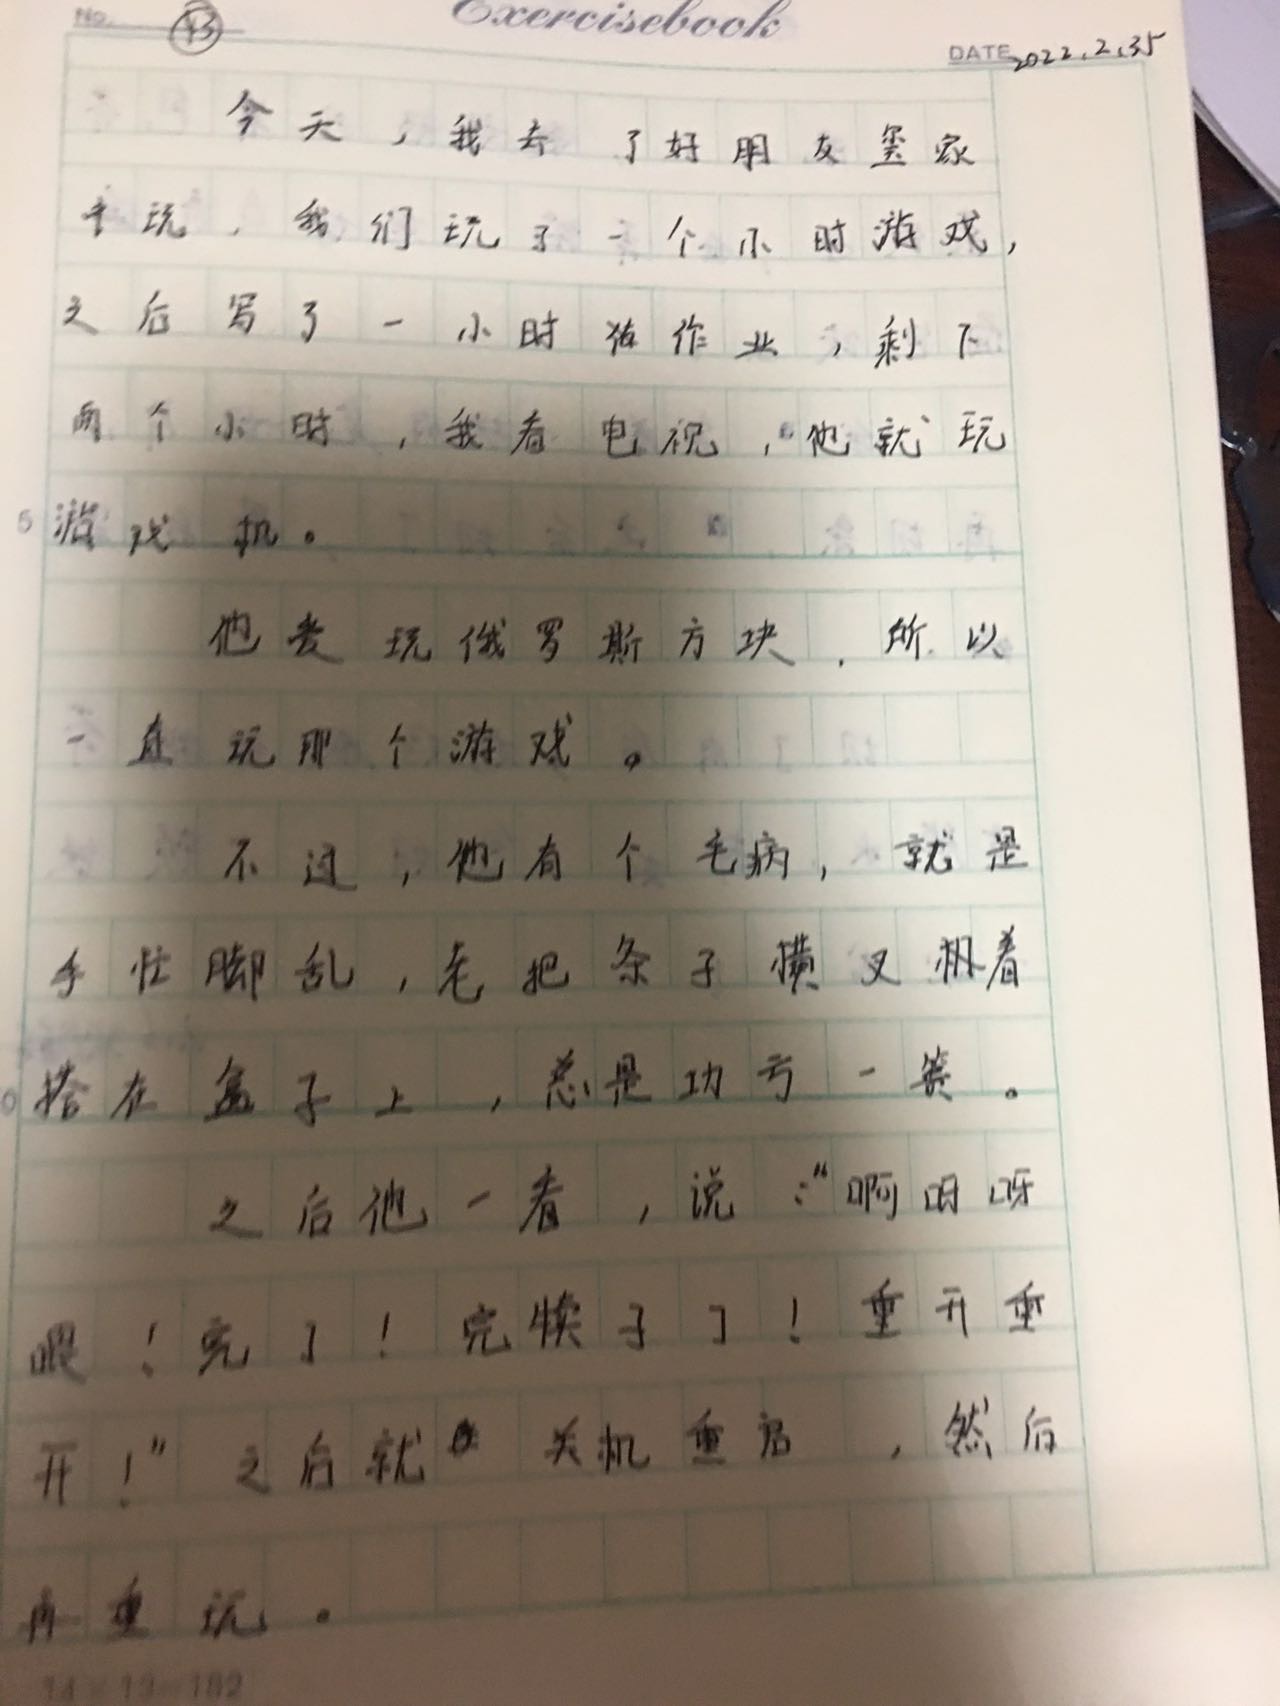 No. 43
Exercisebook
DATE 2022.2.35
今天，我去了好朋友玺家
玩，我们玩了一个小时游戏，
之后写了一小时作业，剩下
两个小时，我看电视，他就玩
5 游戏机。
他老玩俄罗斯方块，所以
一直玩那个游戏。
不过，他有个毛病，就是
手忙脚乱，老把条子横叉着
搭在盒子上，总是功亏一篑。
之后他一看，说：“啊呀
！完了！完犊子了！重开重
开！”之后就关机重启，然后
再重玩。
14×13=182